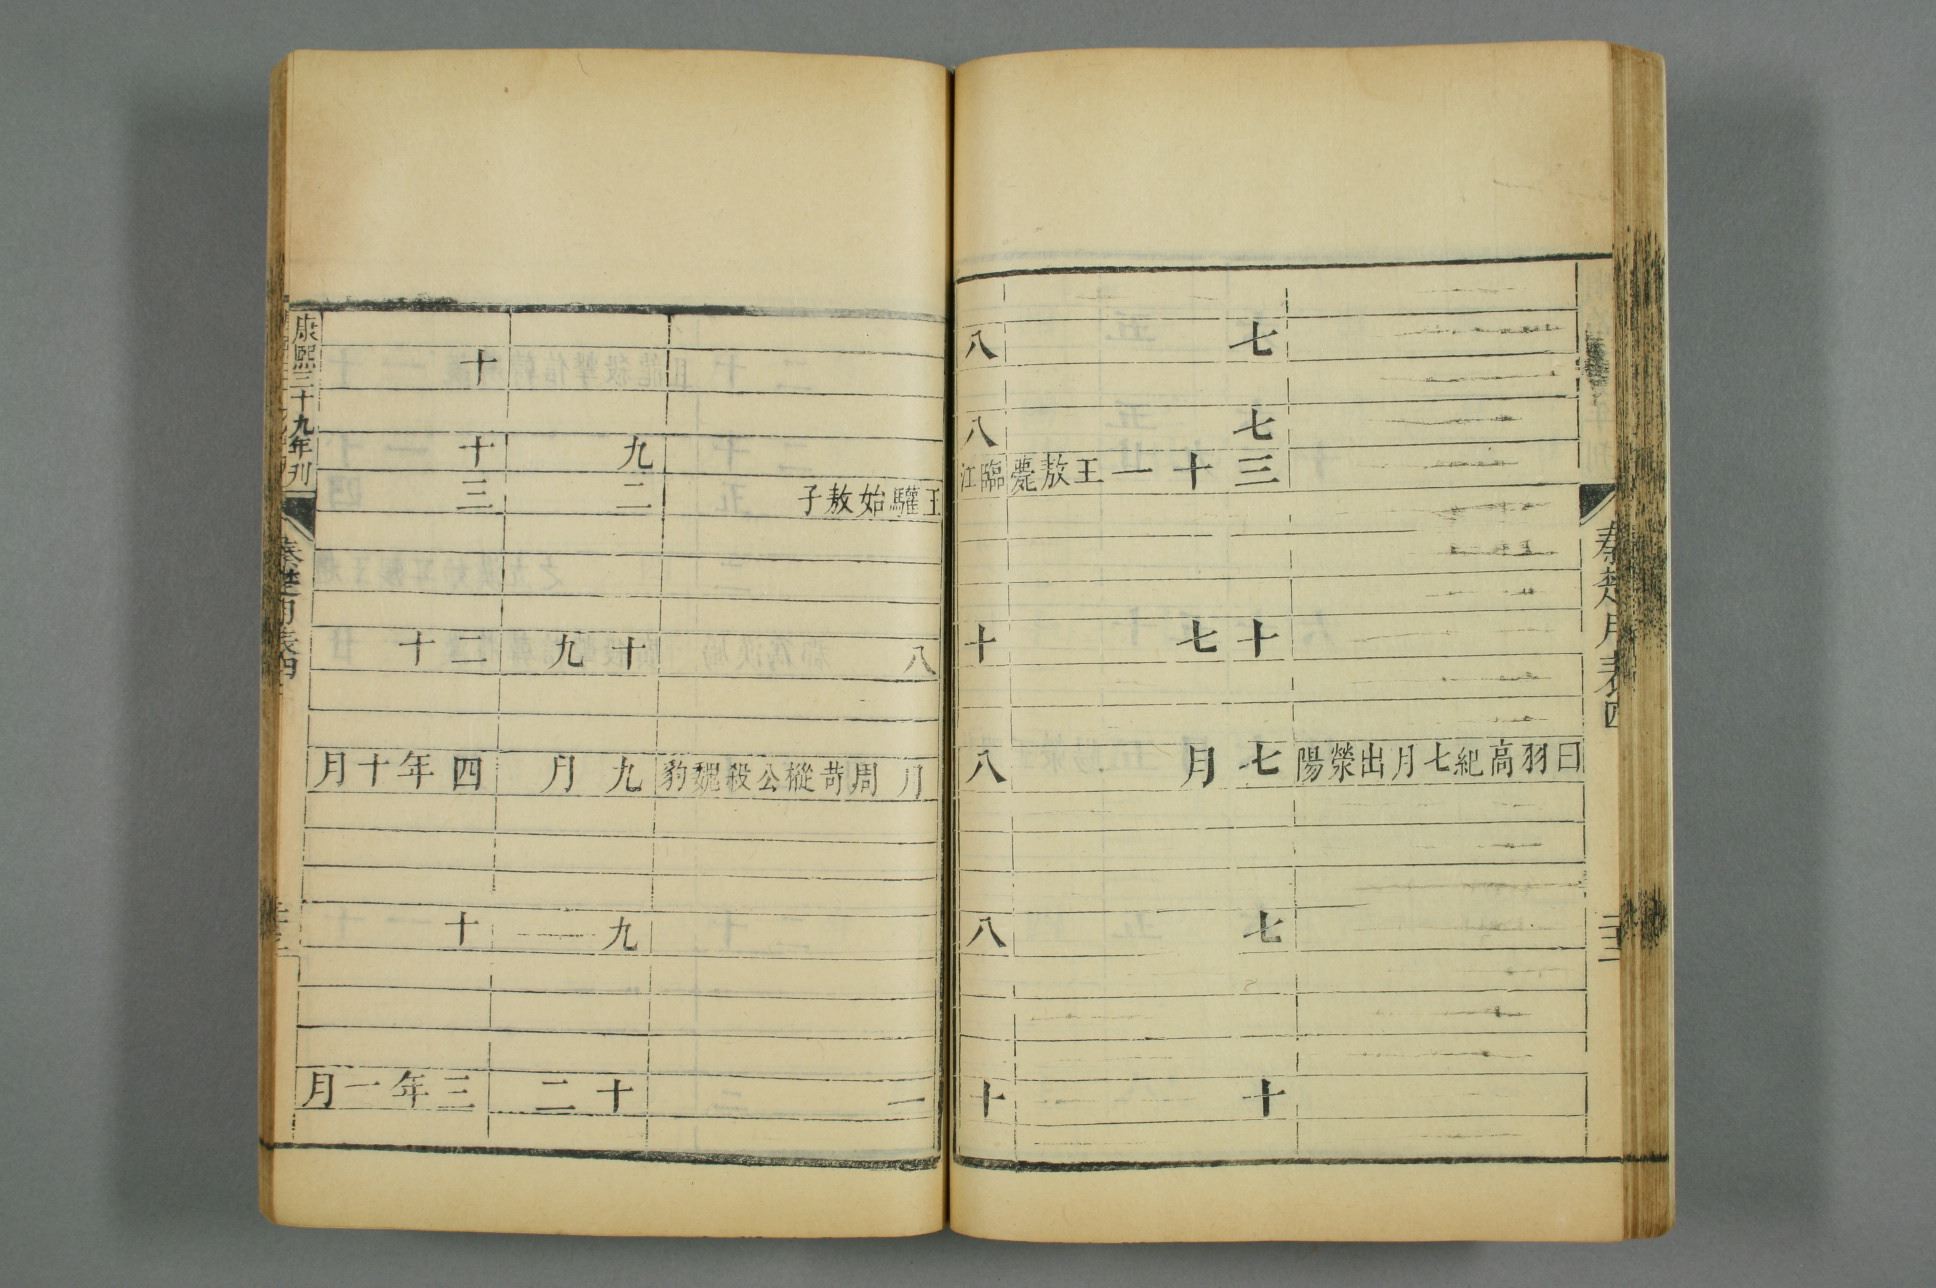 秦楚月表四
曰羽高紀七月出滎陽
七
七
三十一王敖薨
十七
七月
七
十
八
八
臨江王驩始敖子
十八
八月周苛樅公殺魏豹
八
十一
九
二
十九
九月
九
十二
十
十
三
二十
四年十月
十
三年一月
康熙三十九年刊
秦楚月表四